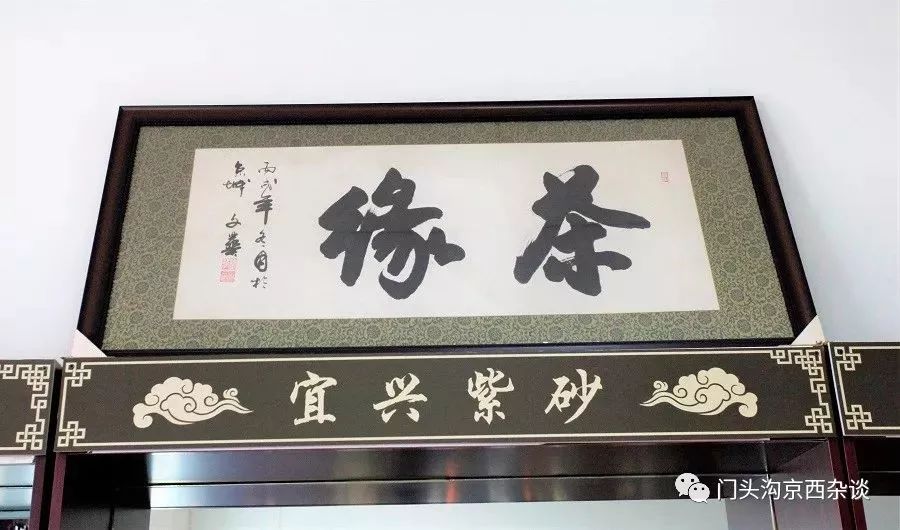 茶缘
丙戌年冬月於
京城 文華
宜兴紫砂
门头沟京西杂谈